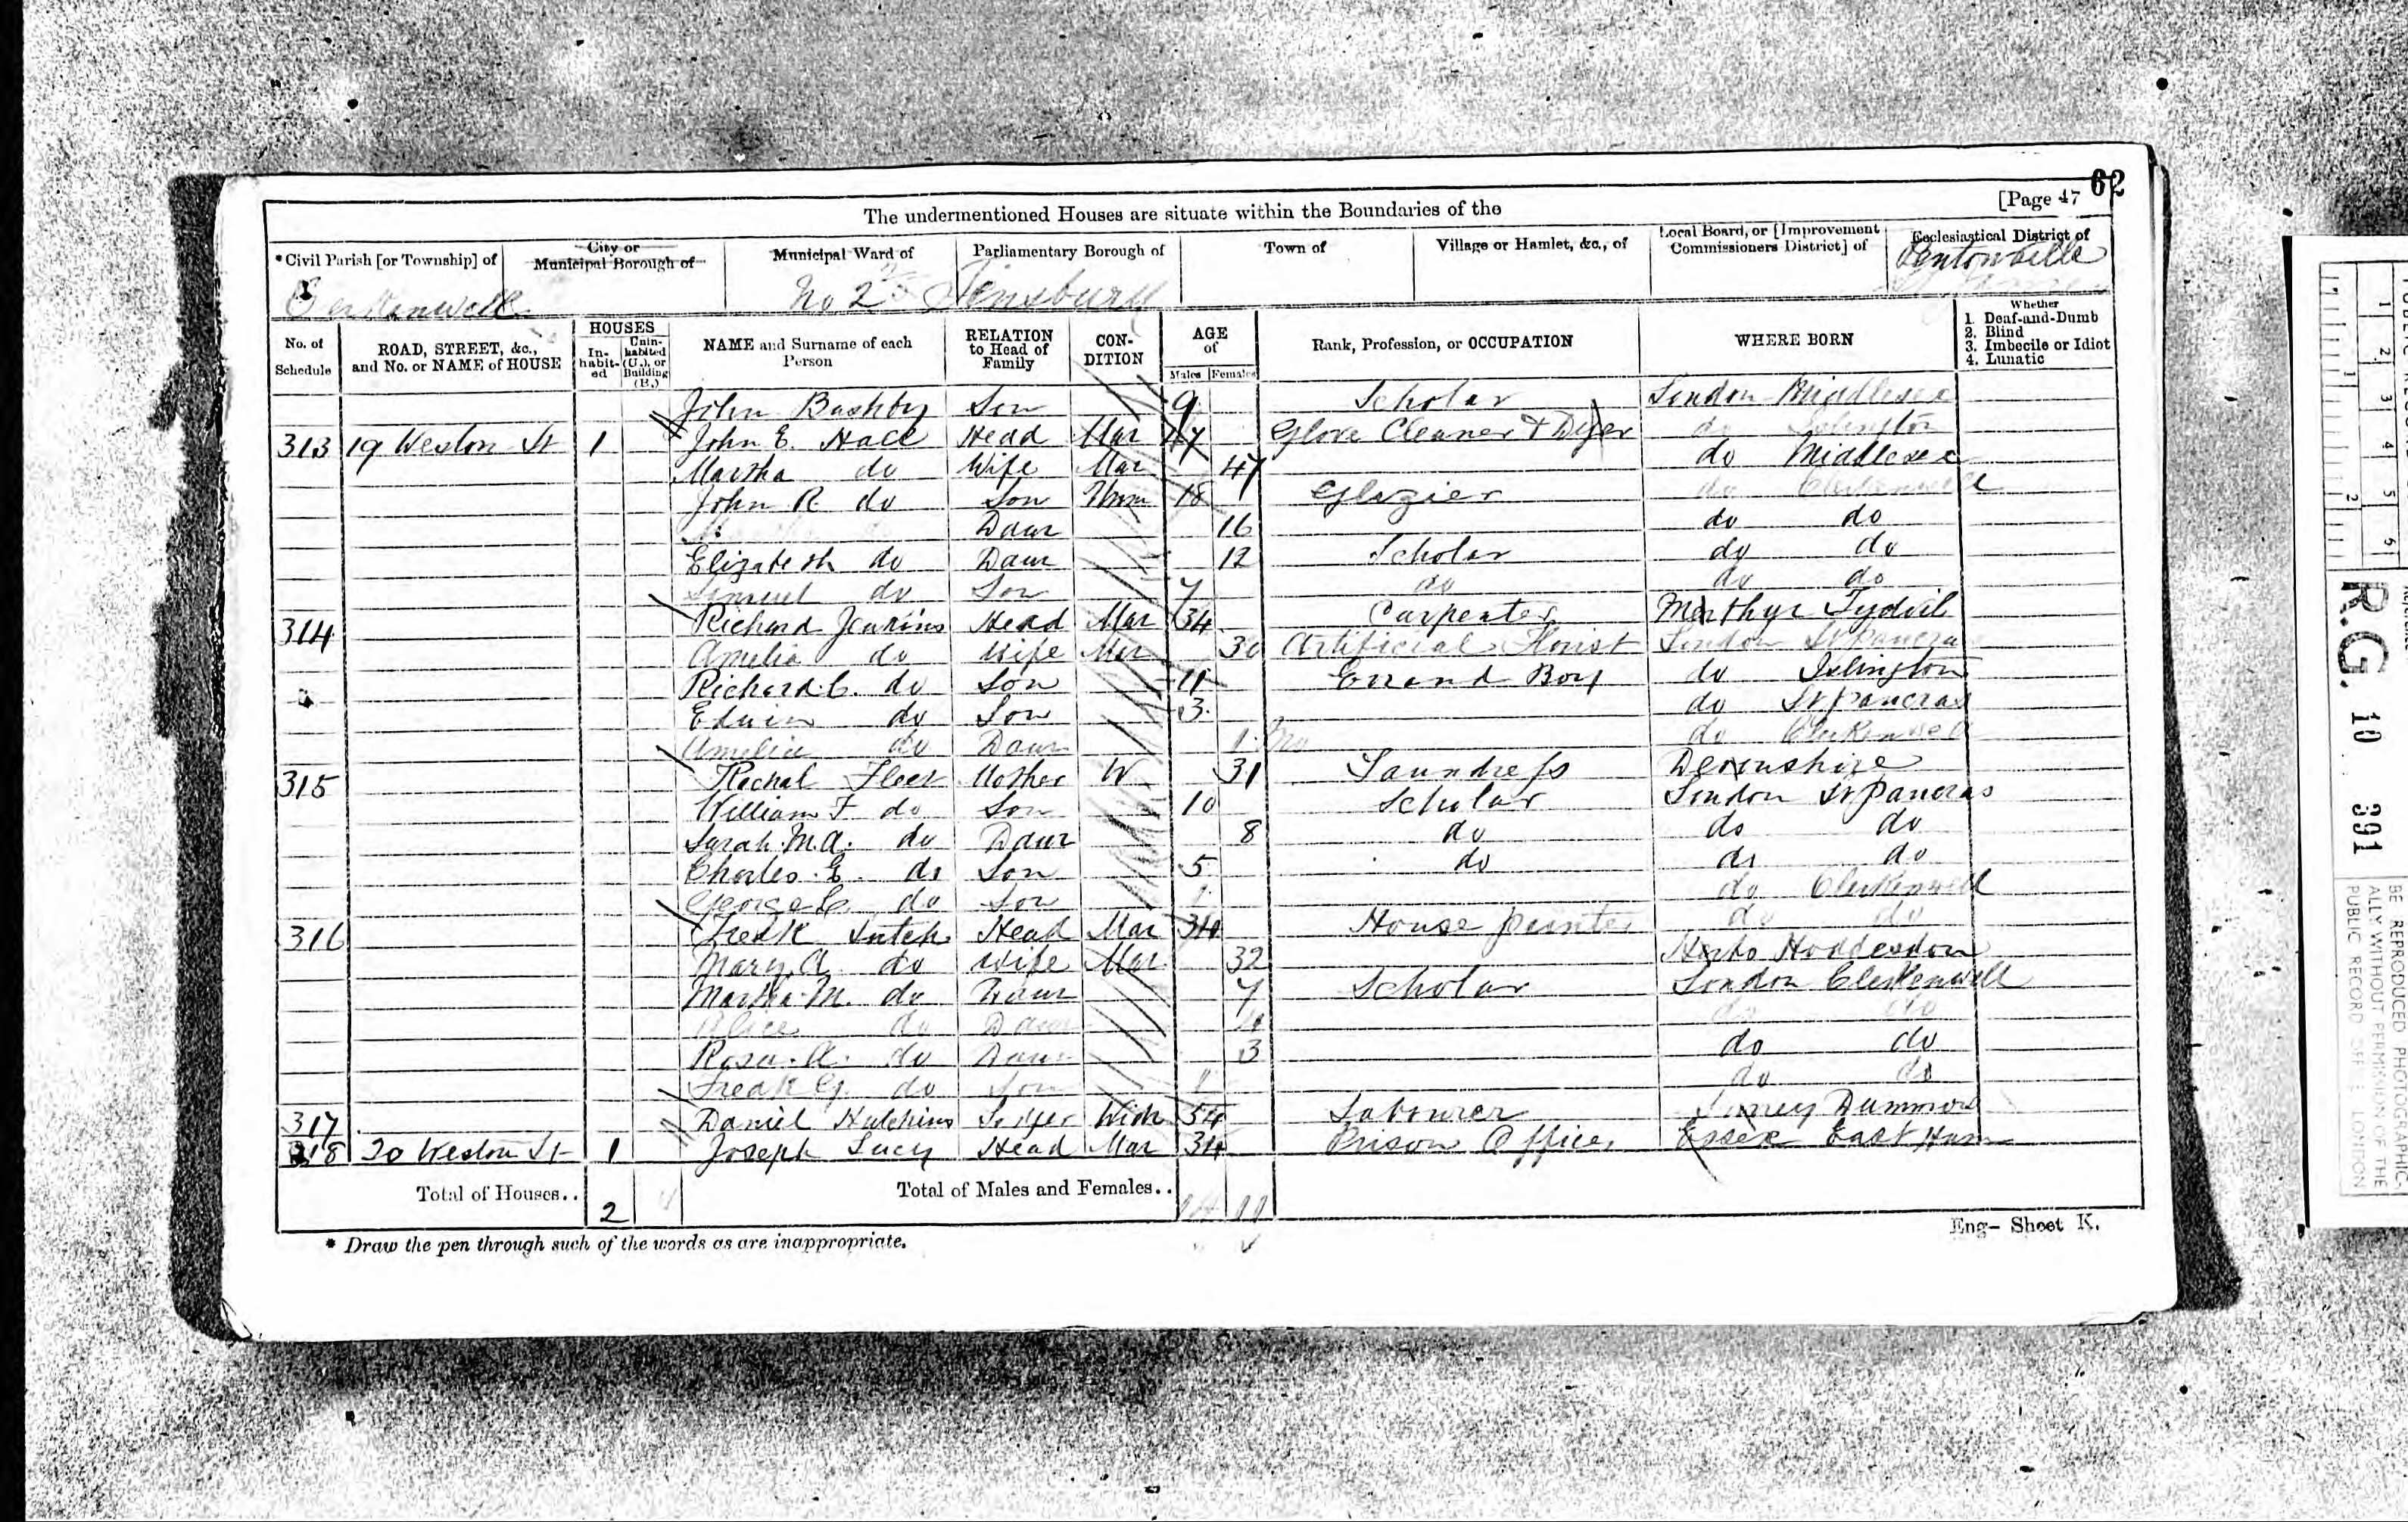 62
[Page 47
The undermentioned Houses are situate within the Boundaries of the
*Civil Parish [or Township] of
City or Municipal Borough of
Municipal Ward of
Parliamentary Borough of
Town of
Village or Hamlet, &c., of
Local Board, or [Improvement Commissioners District] of
Ecclesiastical District of
Clerkenwell No 2 Finsbury Pentonville
No. of Schedule
ROAD, STREET, &c., and No. or NAME of HOUSE
HOUSES
In-habit-ed
Unin-habited (U.), or Building (B.)
NAME and Surname of each Person
RELATION to Head of Family
CON-DITION
AGE of
Males Females
Rank, Profession, or OCCUPATION
WHERE BORN
Whether
1. Deaf-and-Dumb
2. Blind
3. Imbecile or Idiot
4. Lunatic
John Bashby Son 9 Scholar London Middlesex
313 19 Weston St 1 John E. Hall Head Mar 47 Glove Cleaner & Dyer do Islington
Martha do Wife Mar 47 do Middlesex
John R do Son Unm 18 Glazier do Clerkenwell
Daur 16 do do
Elizabeth do Daur 12 Scholar do do
Samuel do Son 7 do do do
314 Richard Jenkins Head Mar 34 Carpenter Merthyr Tydvil
Amelia do Wife Mar 30 Artificial Florist London St Pancras
Richard C. do Son 11 Errand Boy do Islington
Edwin do Son 3 do St Pancras
Amelia do Daur 1 Mo do Clerkenwell
315 Rachal Fleet Mother W 31 Laundress Devonshire
William F do Son 10 Scholar London St Pancras
Sarah M.A. do Daur 8 do do do
Charles E. do Son 5 do do do
George C. do Son do Clerkenwell
316 Fredk Hutch Head Mar 34 House painter do do
Mary A. do Wife Mar 32 Herts Hoddesdon
Martha M. do Daur 7 Scholar London Clerkenwell
Alice do Daur 4 do do
Rosa A. do Daur 3 do do
Fredk G. do Son 1 do do
317 Daniel Hutchins Lodger Wid 54 Labourer Dunmow
318 20 Weston St 1 Joseph Lucy Head Mar 34 Prison Officer Essex East Ham
Total of Houses.. 2
Total of Males and Females.. 14 11
* Draw the pen through such of the words as are inappropriate.
Eng- Sheet K.
R.G. 10 391
BE REPRODUCED PHOTOGRAPHIC-
ALLY WITHOUT PERMISSION OF THE
PUBLIC RECORD OFFICE, LONDON